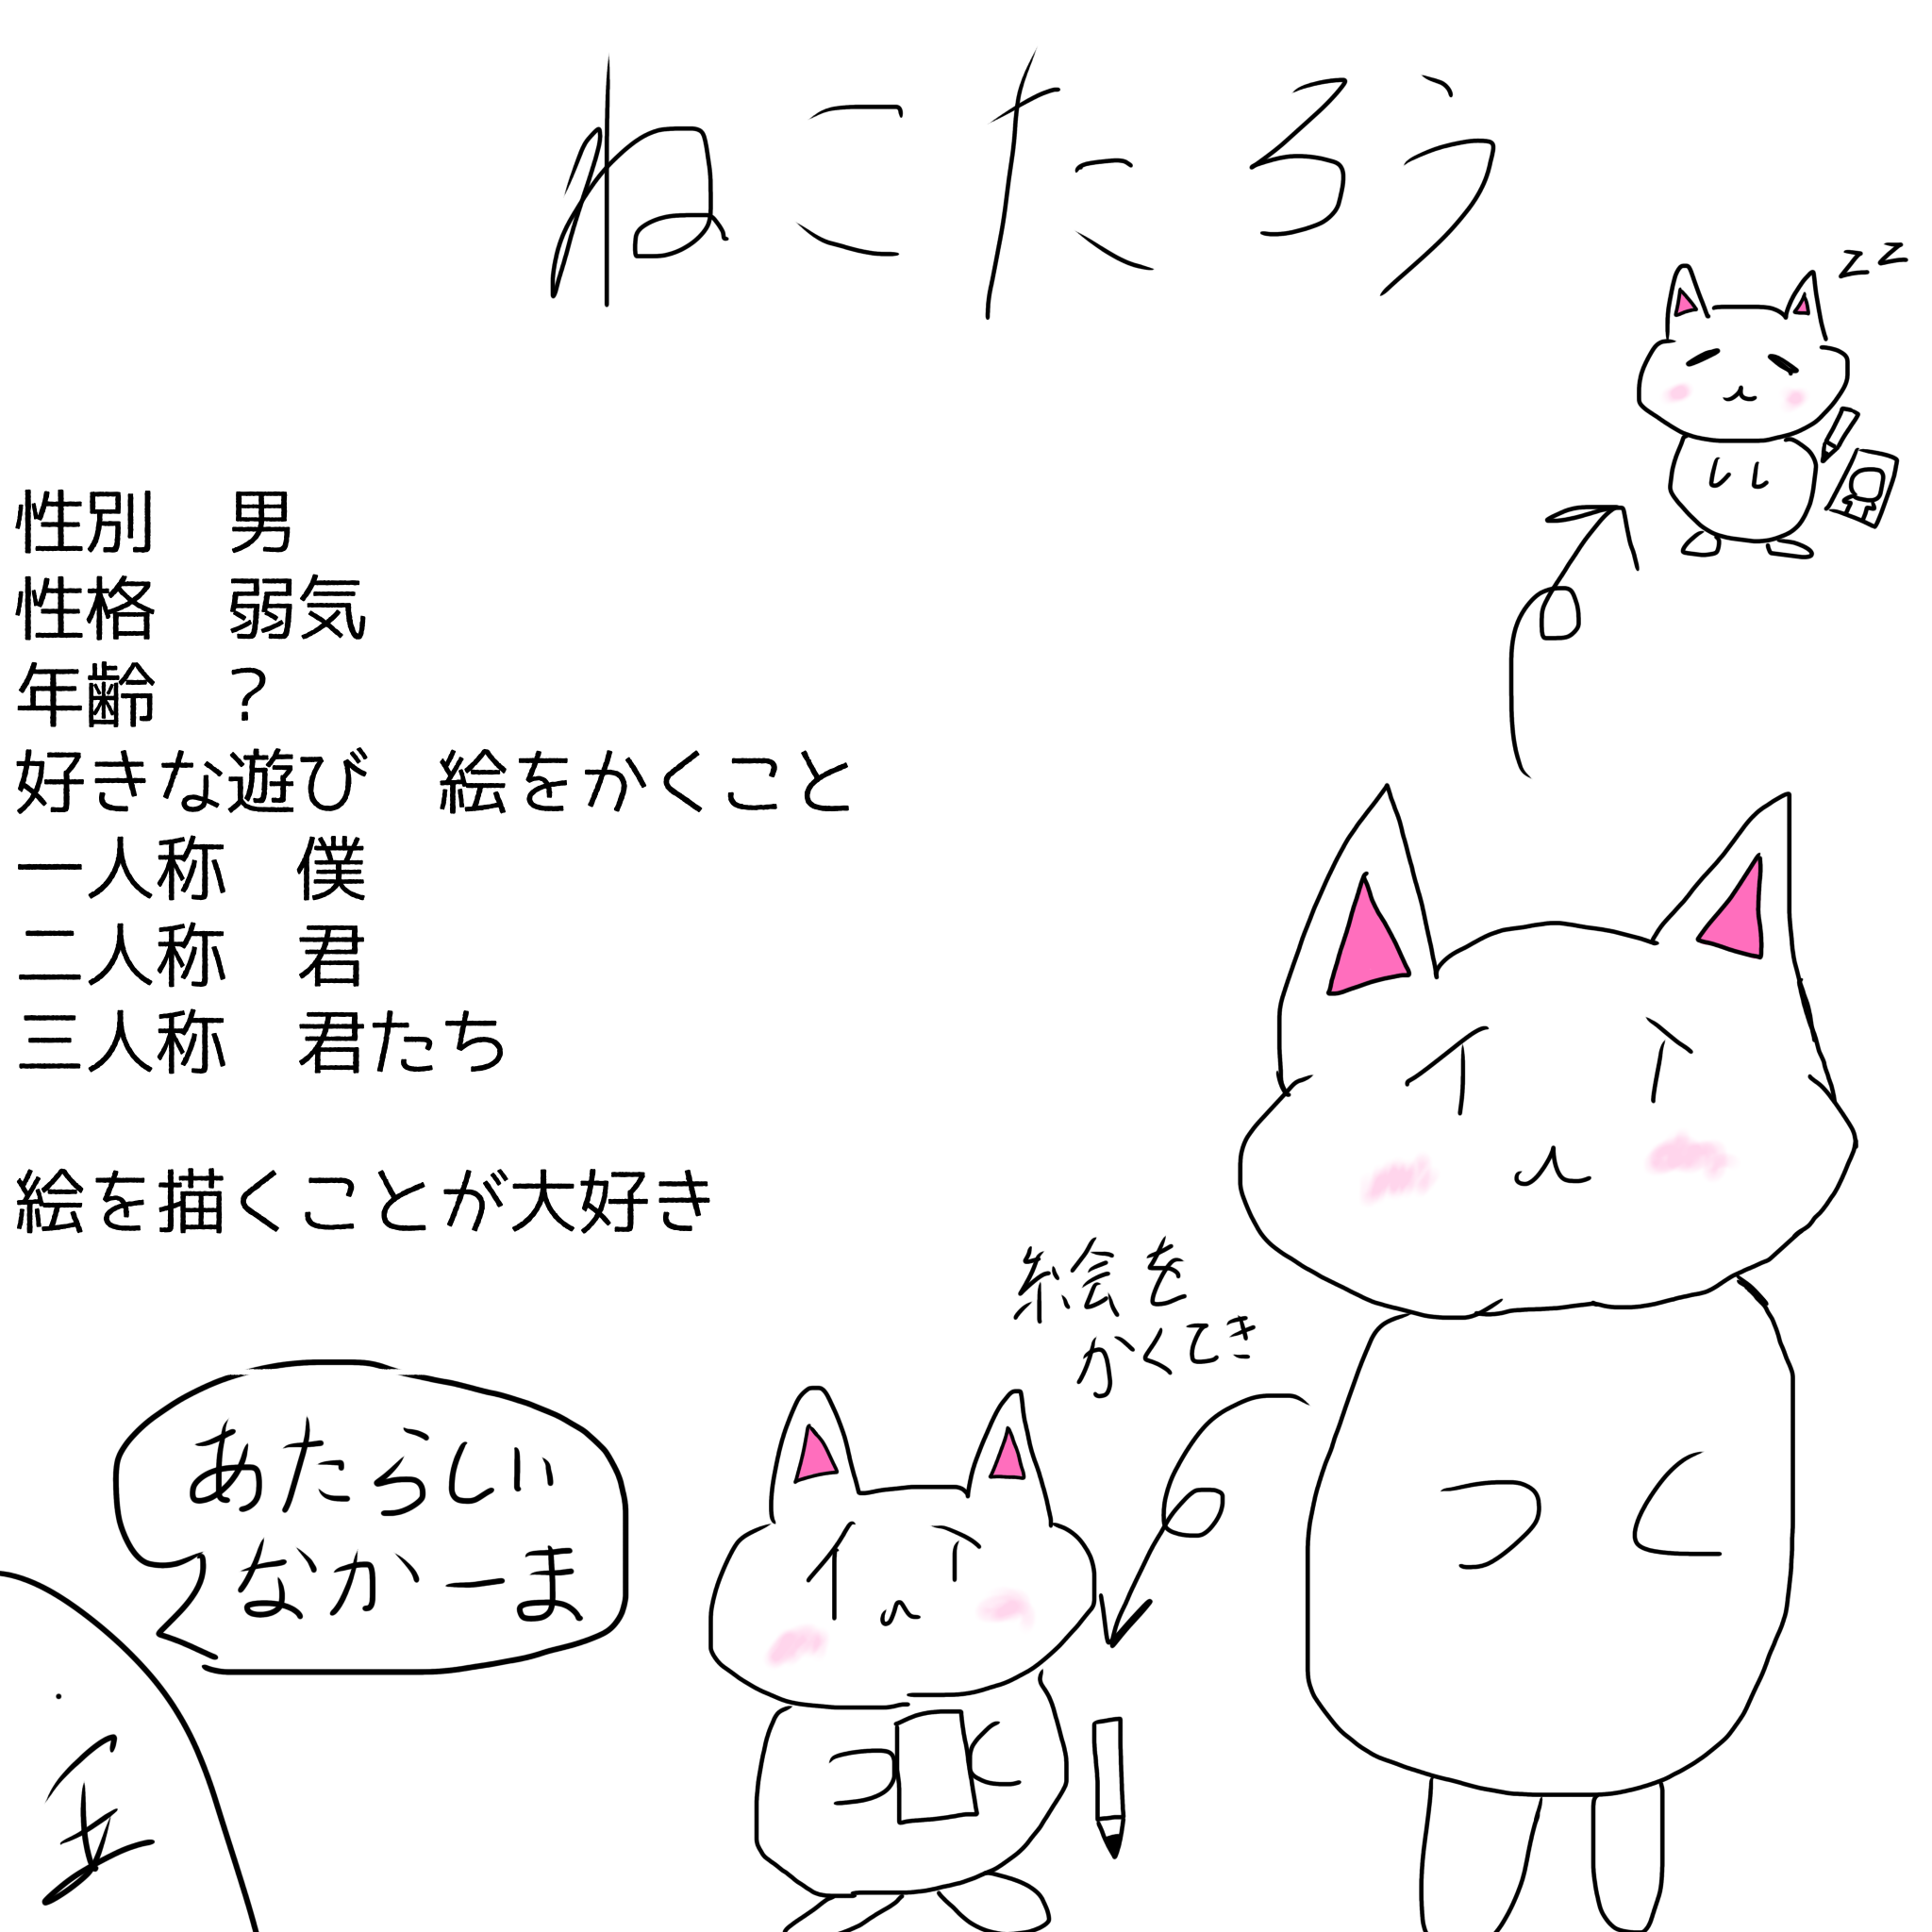 ねこたろう
zz
性別　男
性格　弱気
年齢　?
好きな遊び　絵をかくこと
一人称　僕
二人称　君
三人称　君たち
絵を描くことが大好き
絵を
かくてき
あたらしい
なかーま